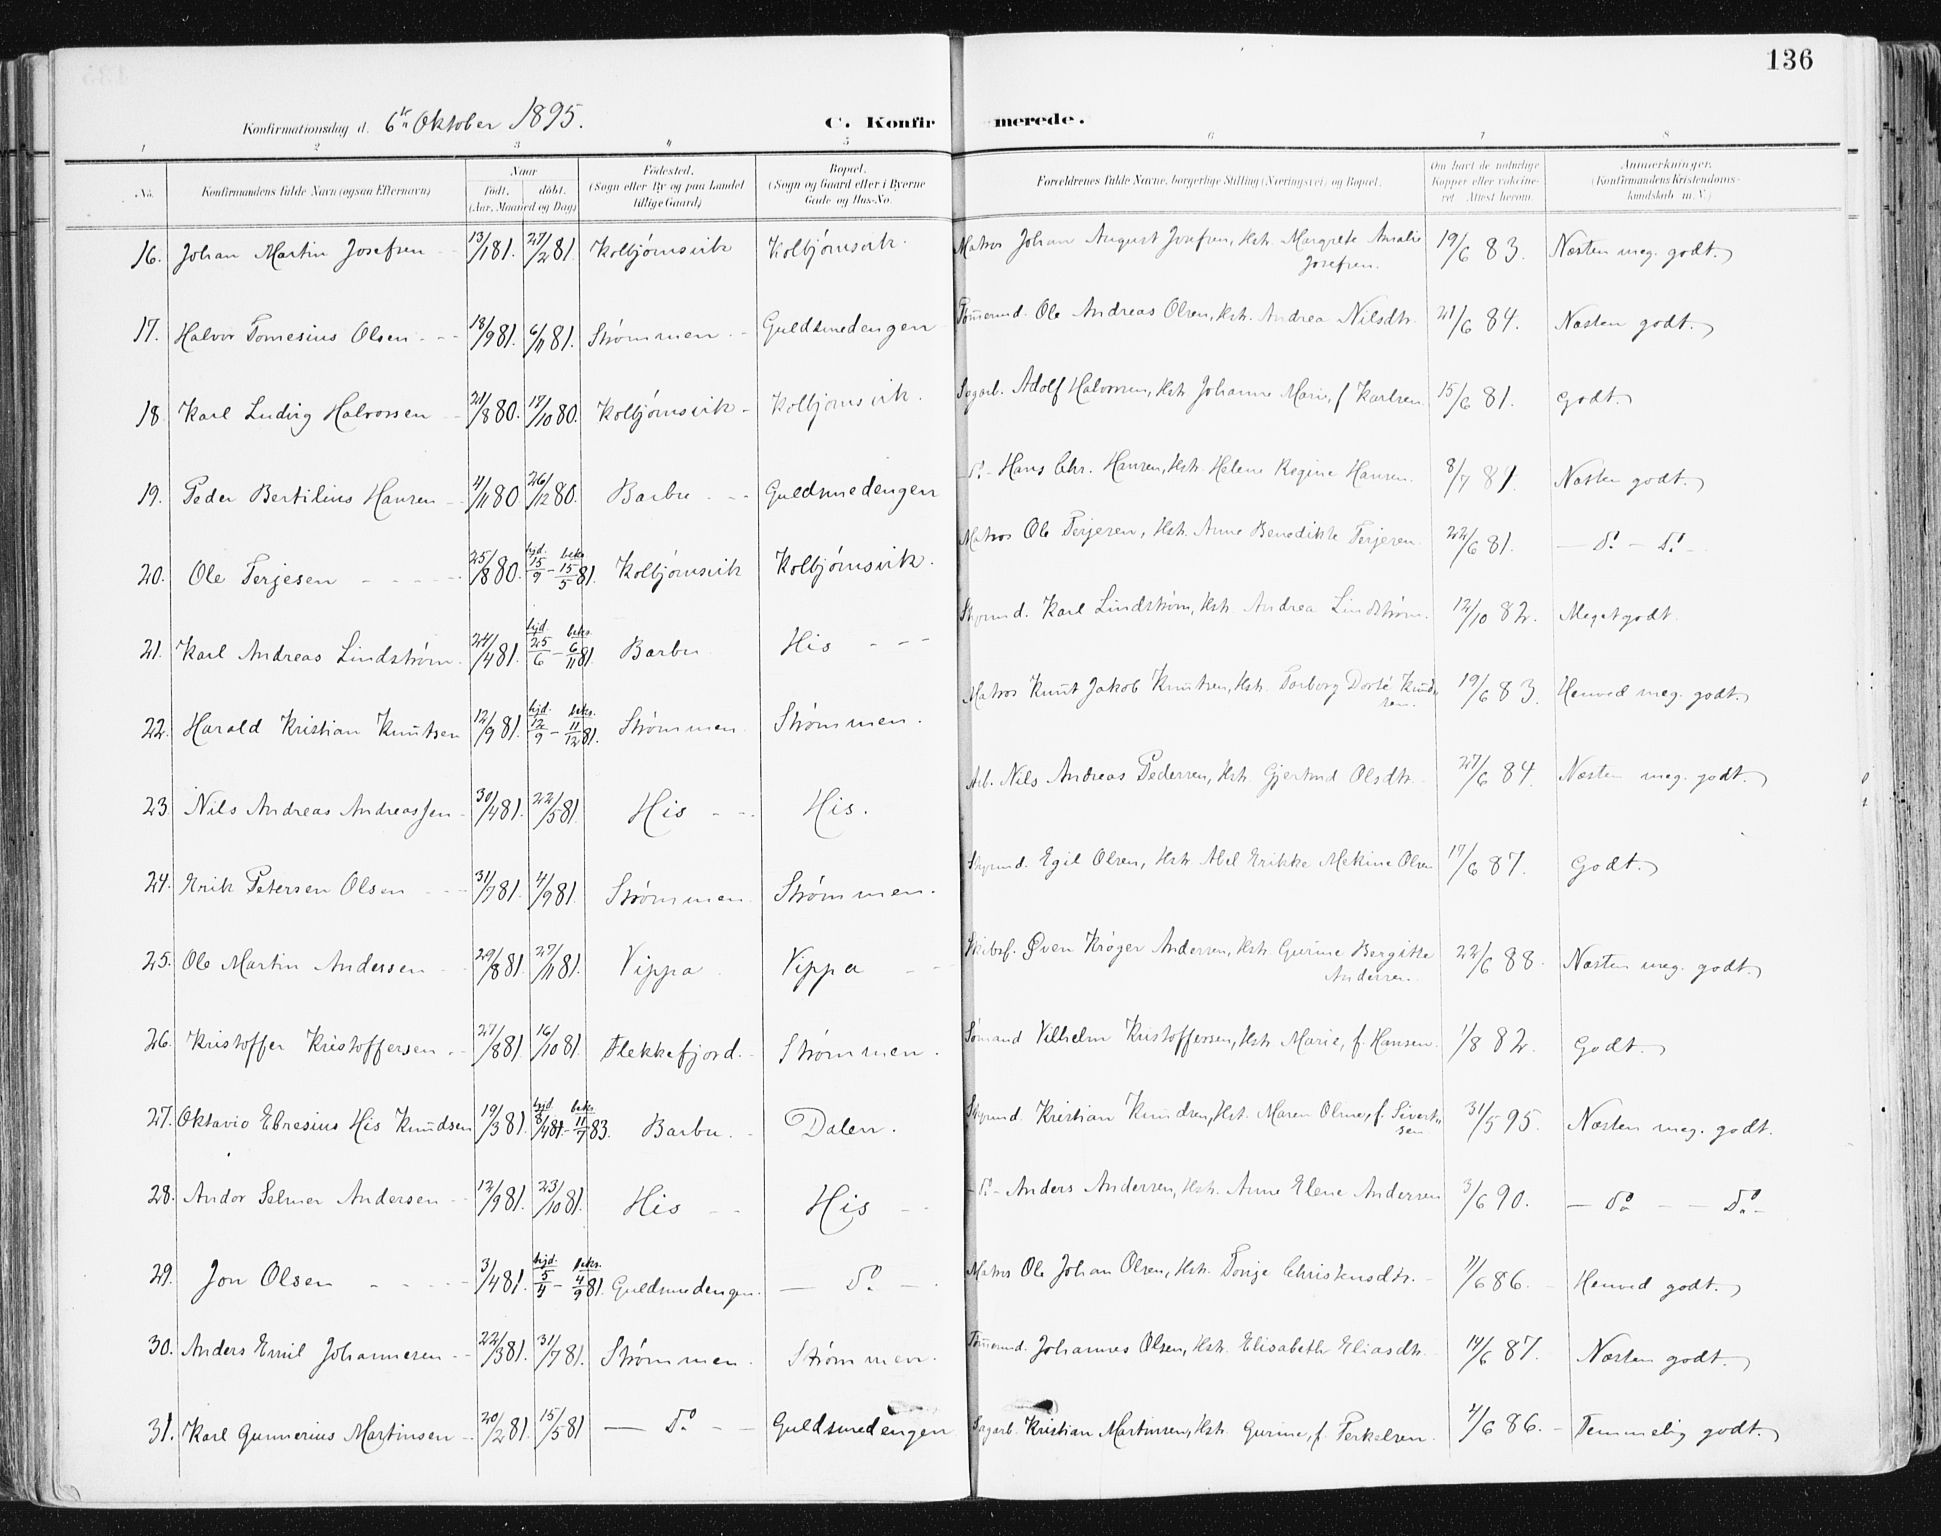 136
Konfirmationsdag d. 6te Oktober 1895.
C. Konfirmerede.
1 2 3 4 5 6 7 8
No. Konfirmandens fulde Navn (ogsaa Efternavn) Naar født. døbt. (Aar, Maaned og Dag) Fødested. (Sogn eller By og paa Landet tillige Gaard) Bopæl. (Sogn og Gaard eller i Byerne Gade og Hus-No. Forældrenes fulde Navne, borgerlige Stilling (Næringsvei) og Bopæl. Om havt de naturlige Kopper eller vakcineret. Attest herom. Anmærkninger. (Konfirmandens Kristendomskundskab m.V.)
16. Johan Martin Josefsen 13/1 81. 27/2 81. Kolbjørnsvik Kolbjørnsvik. Matros Johan August Josefsen, Hstr. Margrete Amalie Josefsen. 19/6 83. Næsten meg. godt.
17. Halvor Tomesius Olsen 13/9 81. 6/11 81. Strømmen Guldsmedengen Tømmermd. Ole Andreas Olsen, Hstr. Andrea Nilsdtr. 21/6 84. Næsten godt.
18. Karl Ludvig Halvorsen 21/8 80. 17/10 80. Kolbjørnsvik Kolbjørnsvik. Sagarb. Adolf Halvorsen, Hstr. Johanne Marie, f. Karlsen 15/6 81. Godt.
19. Peder Bertilius Hansen 4/11 80 26/12 80. Barbu Guldsmedengen Do Hans Chr. Hansen, Hstr. Helene Regine Hansen. 8/7 81. Næsten godt.
20. Ole Terjesen 25/8 80. hjd. 15/9 - beks. 15/5 81. Kolbjørnsvik Kolbjørnsvik. Matros Ole Terjesen, Hstr. Anne Benedikte Terjesen. 22/6 81. Do Do
21. Karl Andreas Lindstrøm 24/4 81. hjd. 25/6 - beks. 6/11 81. Barbu His Styrmd. Karl Lindstrøm, Hstr. Andrea Lindstrøm. 12/10 82. Meget godt.
22. Harald Kristian Knutsen 12/9 81. hjd. 12/9 - beks. 11/12 81. Strømmen Strømmen. Matros Knut Jakob Knutsen, Hstr. Torborg Dorte Knudsen. 19/6 83. Henved meg. godt.
23. Nils Andreas Andreassen 30/4 81. 22/5 81. His His. Arb. Nils Andreas Pedersen, Hstr. Gjertrud Olsdtr. 27/6 84. Næsten meg. godt.
24. Erik Petersen Olsen 31/7 81. 4/9 81. Strømmen Strømmen. Styrmd. Egil Olsen, Hstr. Abel Erikke Mekine Olsen 17/6 87. Godt.
25. Ole Martin Andersen 29/8 81. 27/11 81. Vippa Vippa Skibsf. Øven Krøger Andersen, Hstr. Gurine Bergitte Andersen. 22/6 88. Næsten meg. godt.
26. Kristoffer Kristoffersen 27/8 81. 16/10 81. Flekkefjord. Strømmen. Sømand Vilhelm Kristoffersen, Hstr. Marie, f. Hansen. 1/8 82. Godt.
27. Oktavio Ebresius His Knudsen 19/3 81. hjd. 3/4 81. - beks. 11/7 83. Barbu. Dalen. Styrmd. Kristian Knudsen, Hst. Maren Oline, f. Sivertsen 31/5 95. Næsten meg. godt.
28. Andor Selmer Andersen 12/9 81. 23/10 81. His His Do Anders Andersen, Hstr. Anne Elene Andersen 3/6 90. Do Do
29. Jon Olsen 3/4 81. hjd. 5/4 - beks. 4/9 81. Guldsmedengen. Do Matros Ole Johan Olsen, Hstr. Torije Christensdtr. 11/6 86. Henved godt.
30. Anders Emil Johannesen 22/3 81. 31/7 81. Strømmen. Strømmen. Tømmermd. Johannes Olsen, Hstr. Elisabeth Eliasdtr. 14/6 87. Næsten godt.
31. Karl Gunnerius Martinsen 20/2 81. 15/5 81 Do Guldsmedengen Sagarb. Kristian Martinsen, Hstr. Gurine, f. Terkelsen. 4/6 86. Temmelig godt.